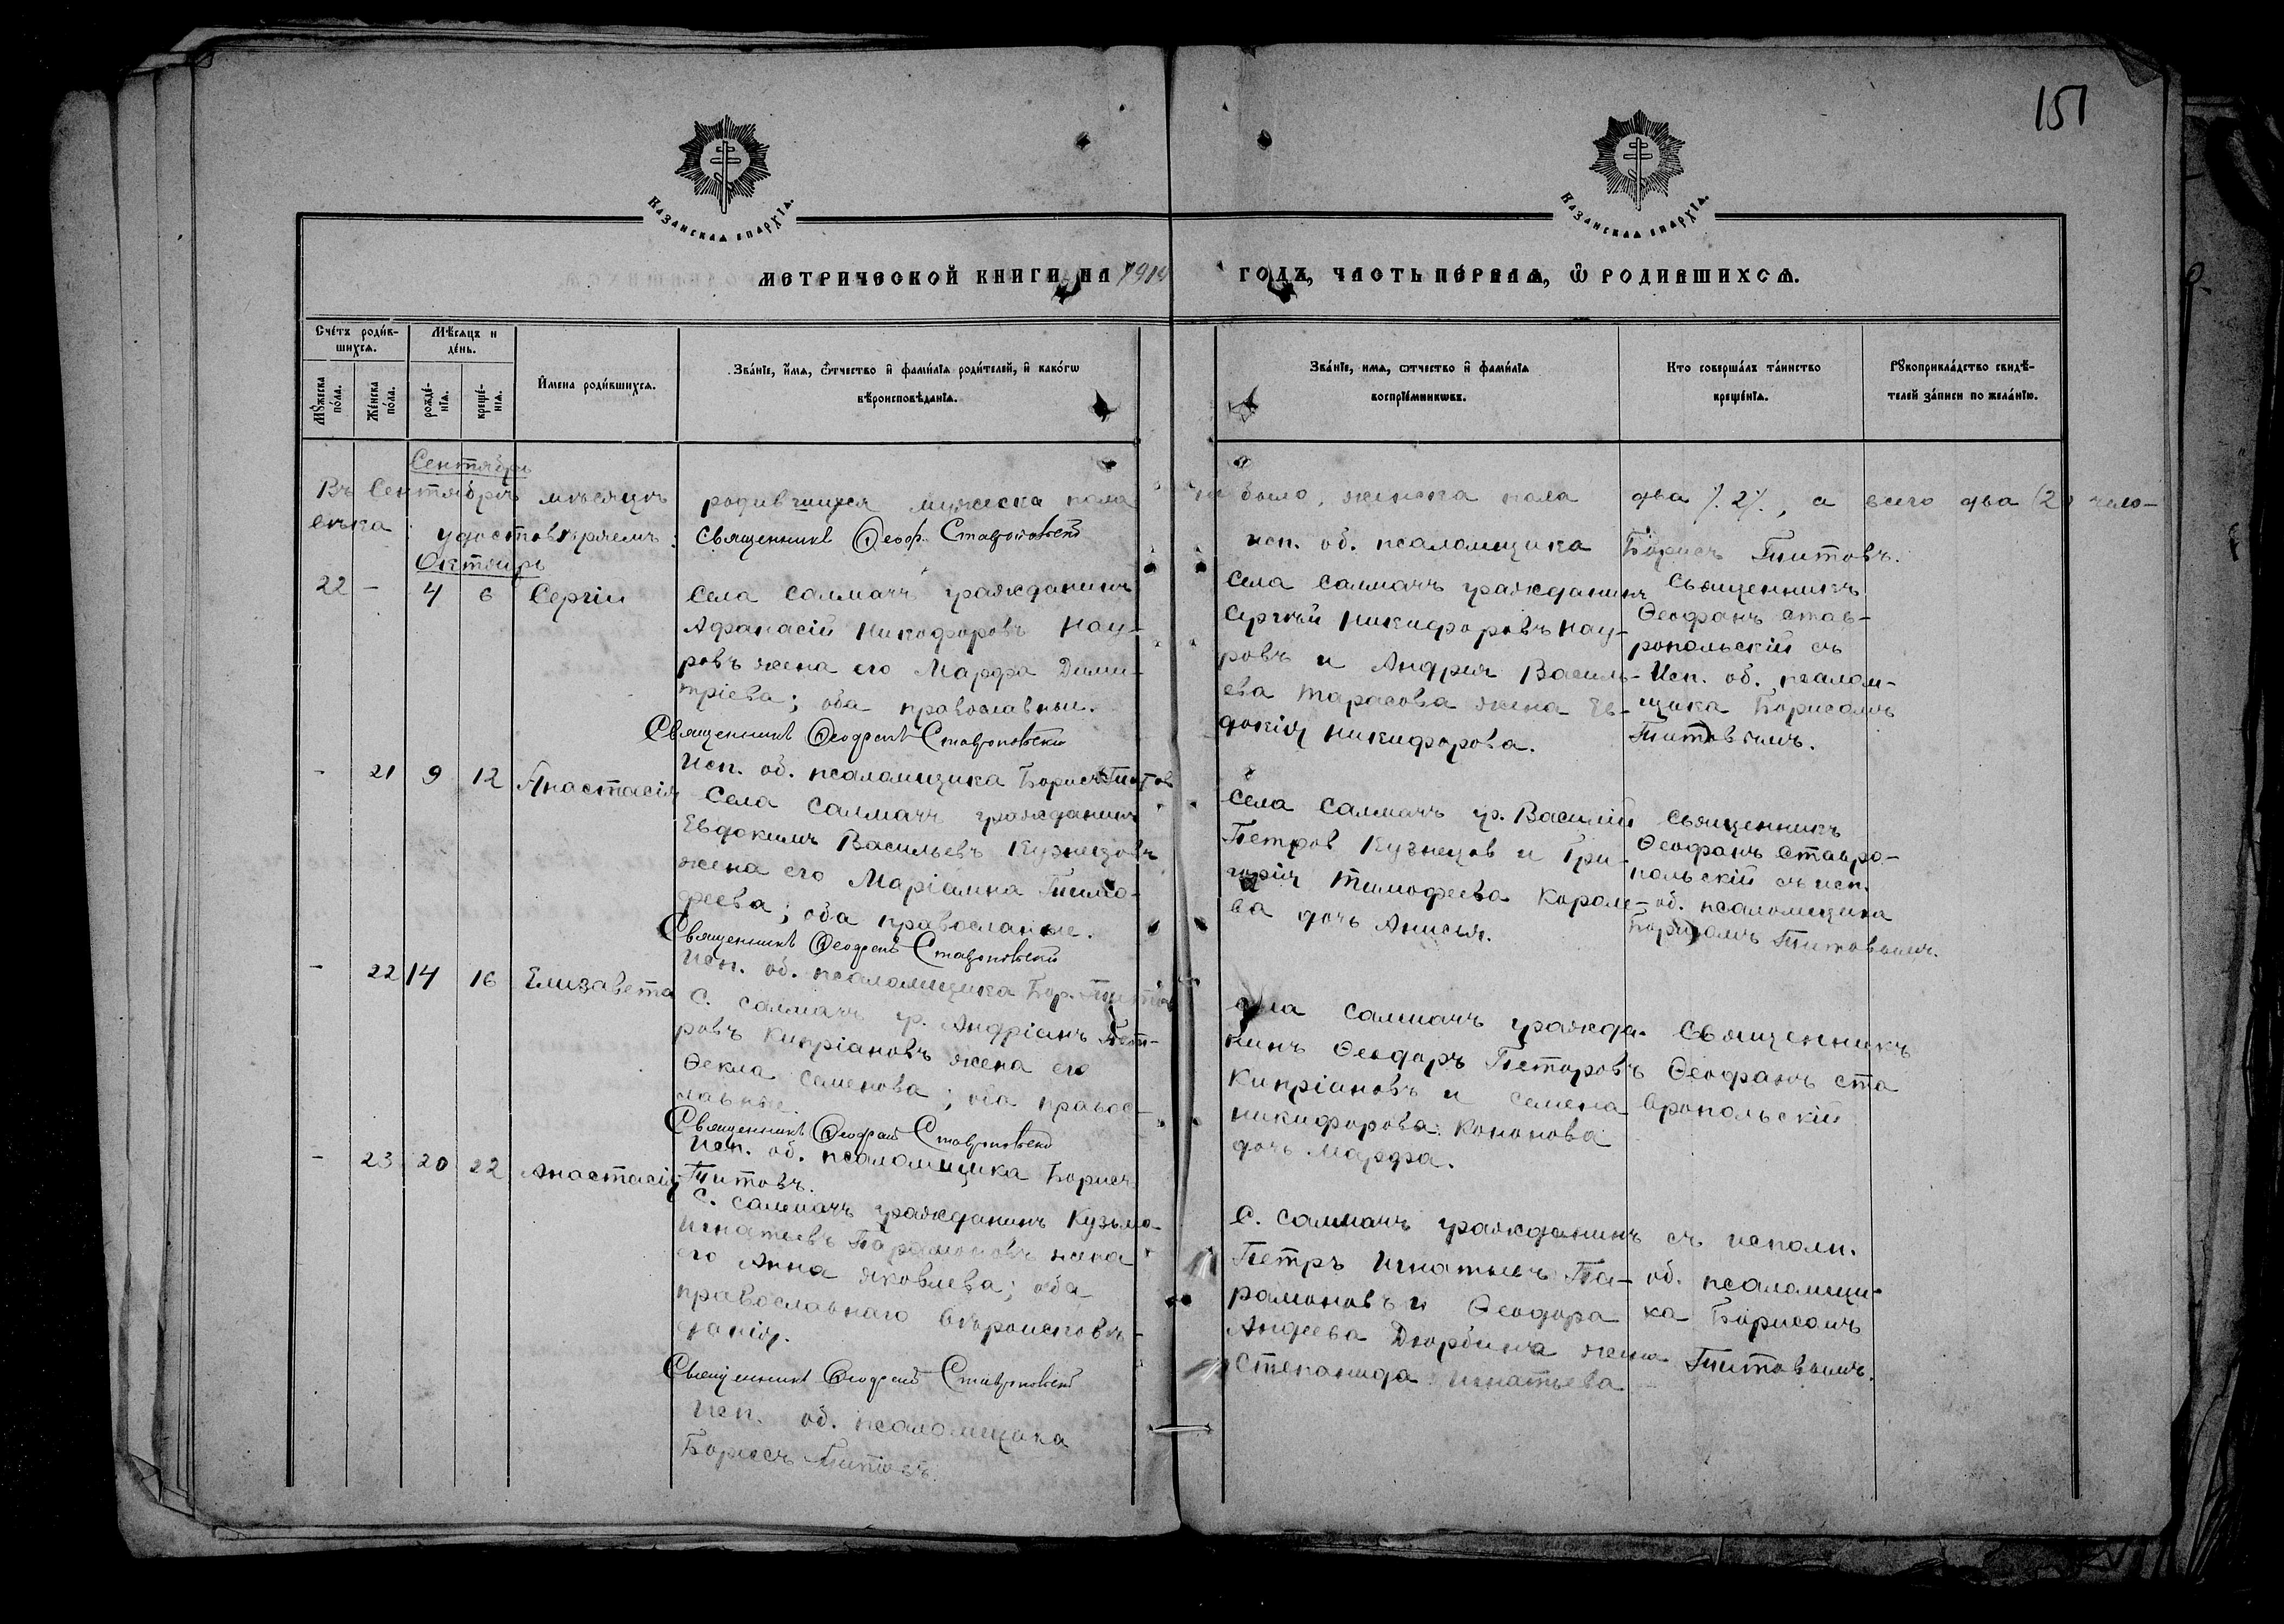 151
Казанская епархїя.
Казанская епархїя.
МЕТРИЧЕСКОЙ КНИГИ НА 1919 ГОДЪ, ЧАСТЬ ПЕРВАЯ, Ѿ РОДИВШИХСЯ.
Сче́тъ роди́вшихся.
Мꙋ́жеска по́ла.
Же́нска по́ла.
Мѣ́сяцъ и де́нь.
рожде́нїя.
креще́нїя.
И́мена роди́вшихся.
Зва́нїе, и́мя, ѻ́тчество и҆ фами́лїя роди́телей, и҆ како́гѡ
вѣроисповѣ́данїя.
Зва́нїе, имя, ѻтчество и҆ фами́лїя
воспрїе́мникѡвъ.
Кто соверша́лъ та́инство
креще́нїя.
Рꙋкоприкла́дство свидѣ́-
телей за́писи по жела́нїю.
Сентябрь
Въ Сентябрѣ мѣсяцѣ родившихся мужеска пола не было, женска пола два /.2/., а всего два (2) чело-
вѣка удостовѣряемъ: Священникъ Ѳеоф. Ставропольскій
исп. об. псаломщика Борисъ Титовъ.
Октябрь
22 - 4 6 Сергій
Села Салмачъ гражданинъ
Афанасій Никифоровъ Нау-
ровъ жена его Марфа Дими-
тріева; оба православные.
Священникъ Ѳеофанъ Ставропольскій
Исп. об. псаломщика Борисъ Титов
Села Салмачъ гражданинъ
Сергѣй Никифоровъ Нау-
ровъ и Андрея Василь-
ева Тарасова жена Ев-
докія Никифорова.
Священникъ
Ѳеофанъ Став-
ропольскій съ
Исп. об. псалом-
щика Борисомъ
Титовымъ.
- 21 9 12 Анастасія
Села Салмачъ гражданинъ
Евдокимъ Васильевъ Кузнецовъ
жена его Маріамна Тимо-
феева; оба православные.
Священникъ Ѳеофанъ Ставропольскій
Исп. об. псаломщика Бор. Титов
Села Салмачъ гр. Василій
Петров Кузнецов и Гри-
горія Тимофеева Короле-
ва дочь Анисья.
Священникъ
Ѳеофанъ Ставро-
польскій съ исп.
об. псаломщика
Борисомъ Титовымъ.
- 22 14 16 Елизавета
С. Салмачъ гр. Андріанъ Пет-
ровъ Кипріановъ жена его
Ѳекла Семенова; оба правос-
лавные.
Священникъ Ѳеофанъ Ставропольскій
Исп. об. псаломщика Борисъ
Титовъ.
Села Салмачъ гражда-
нинъ Ѳеодоръ Петровъ
Кипріановъ и Семена
Никифорова Кононова
дочь Марфа.
Священникъ
Ѳеофанъ Ста
вропольскій
- 23 20 22 Анастасія
С. Салмачъ гражданинъ Кузьма
Игнатьевъ Парамоновъ жена
его Анна Яковлева; оба
православнаго вѣроисповѣ-
данія.
Священникъ Ѳеофанъ Ставропольскій
Исп. об. псаломщика
Борисъ Титовъ.
С. Салмачъ гражданинъ
Петръ Игнатьевъ Па-
рамоновъ и Ѳеодора
Андеева жена
Степанида Игнатьева
съ исполн.
об. псаломщи-
ка Борисомъ
Титовымъ.